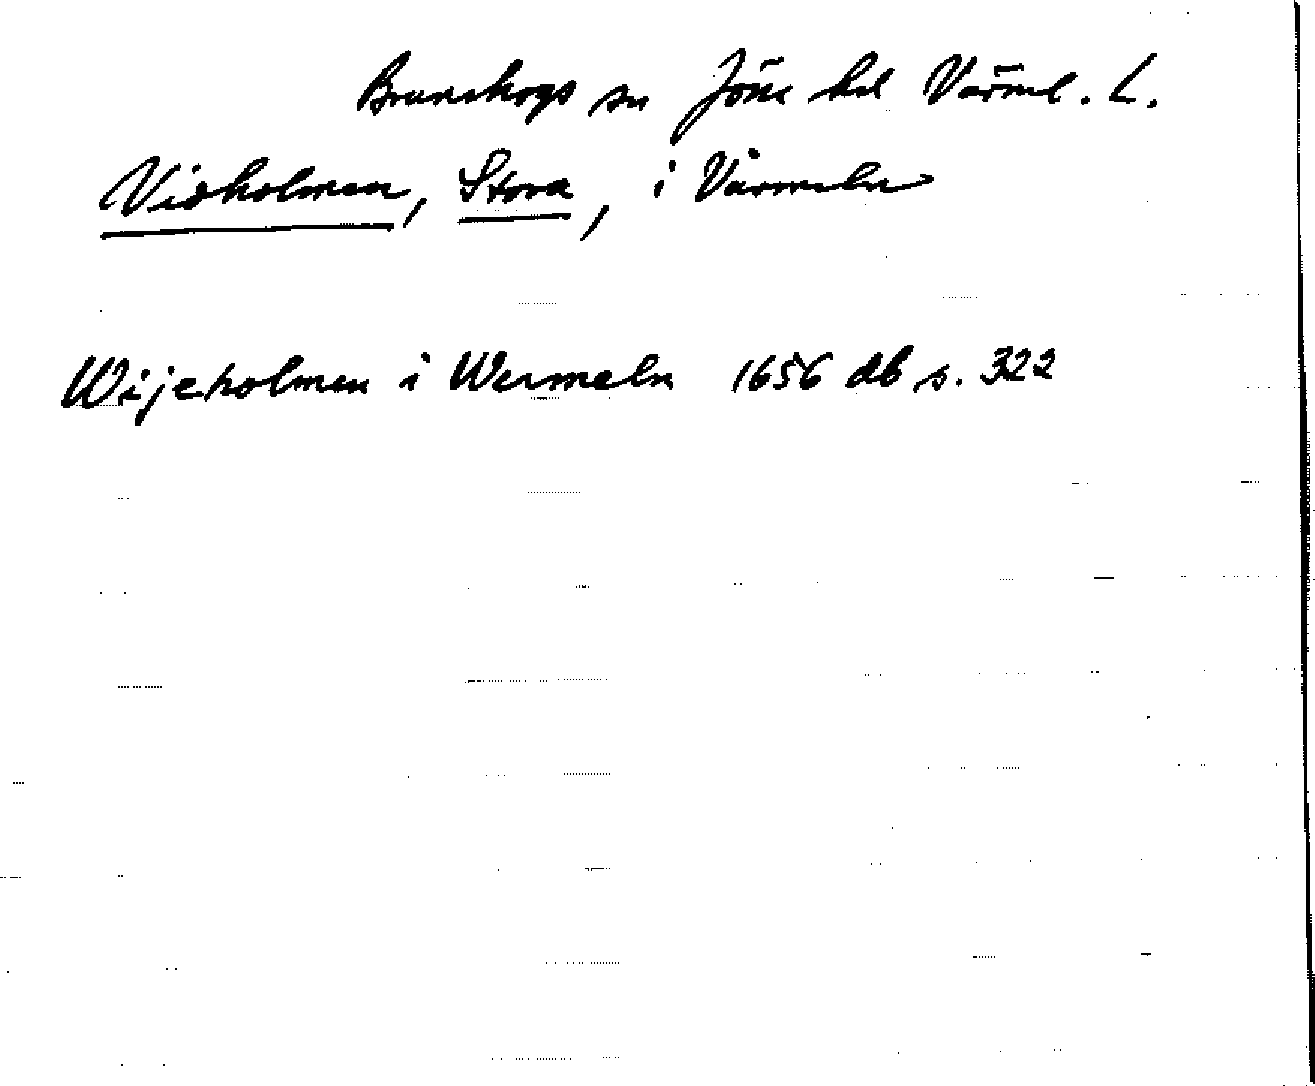 Brunskogs sn Jösse hd Värml. L.
Vidholmen, Stora, i Värmeln
Wijeholmen i Wermeln 1656 db s. 322